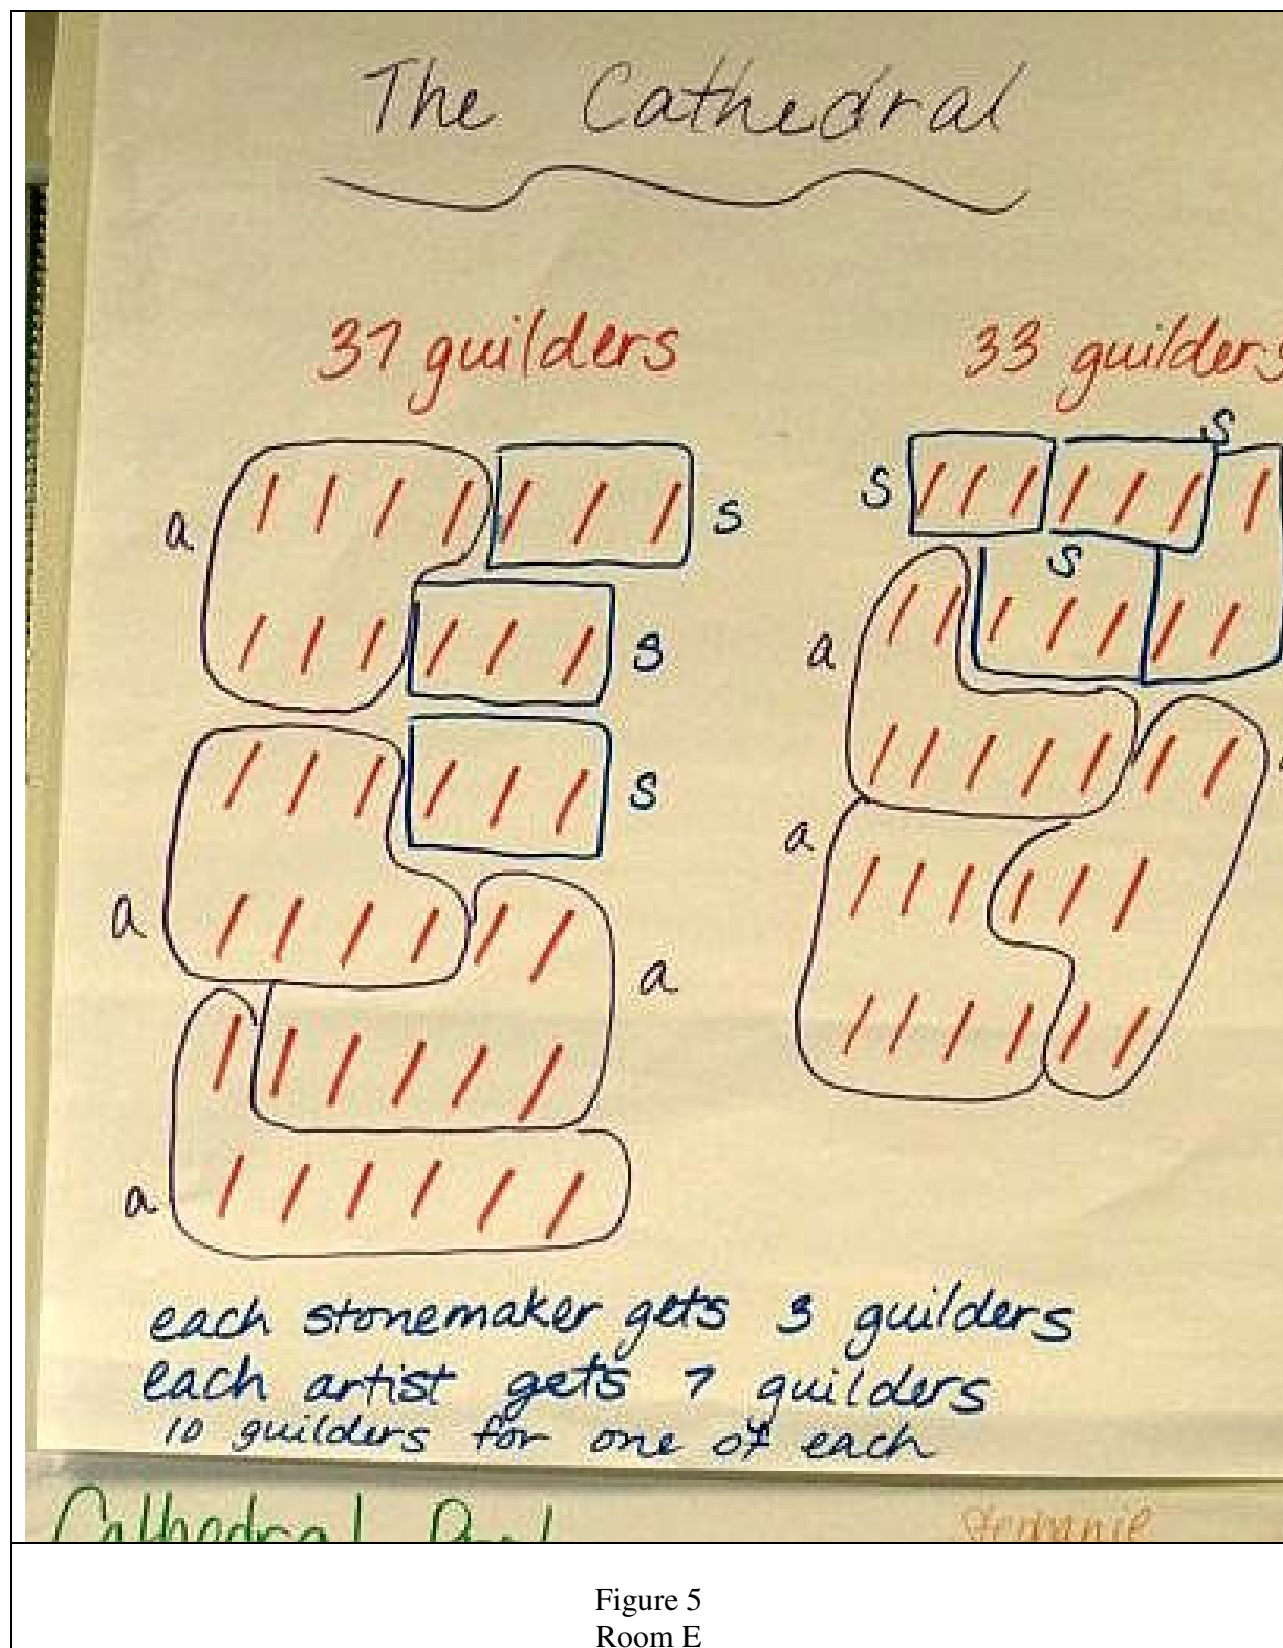 The Cathedral
37 guilders
33 guilders
a
s
s
s
s
s
s
a
a
a
a
a
a
each stonemaker gets 3 guilders
each artist gets 7 guilders
10 guilders for one of each
Cathedral
Stephanie
Figure 5
Room E